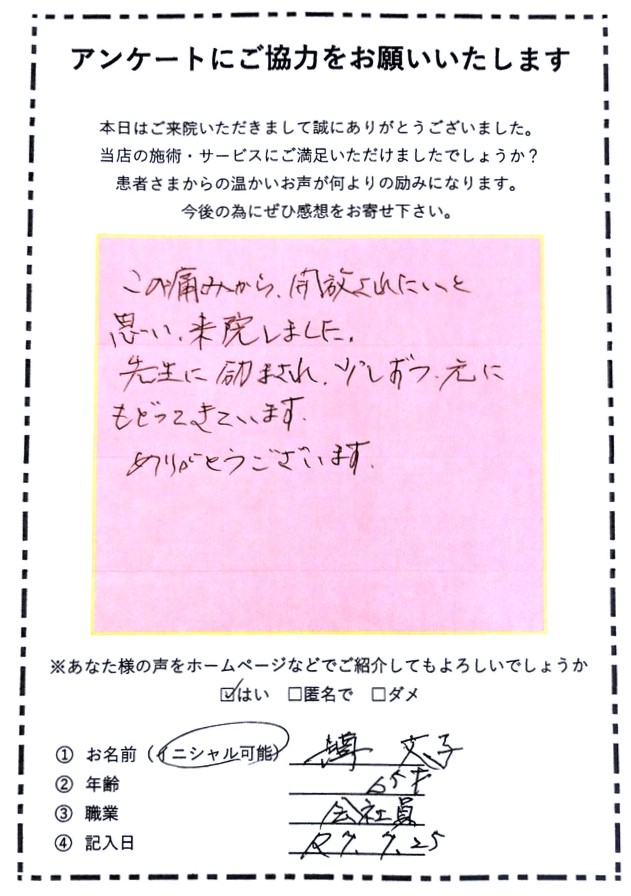 アンケートにご協力をお願いいたします
本日はご来院いただきまして誠にありがとうございました。
当店の施術・サービスにご満足いただけましたでしょうか？
患者さまからの温かいお声が何よりの励みになります。
今後の為にぜひ感想をお寄せ下さい。
この痛みから、開放されたいと
思い、来院しました。
先生に励まされ、少しずつ、元に
もどってきています。
ありがとうございます。
※あなた様の声をホームページなどでご紹介してもよろしいでしょうか
☑はい　□匿名で　□ダメ
① お名前（イニシャル可能） 文子
② 年齢 65才
③ 職業 会社員
④ 記入日 R7.7.25